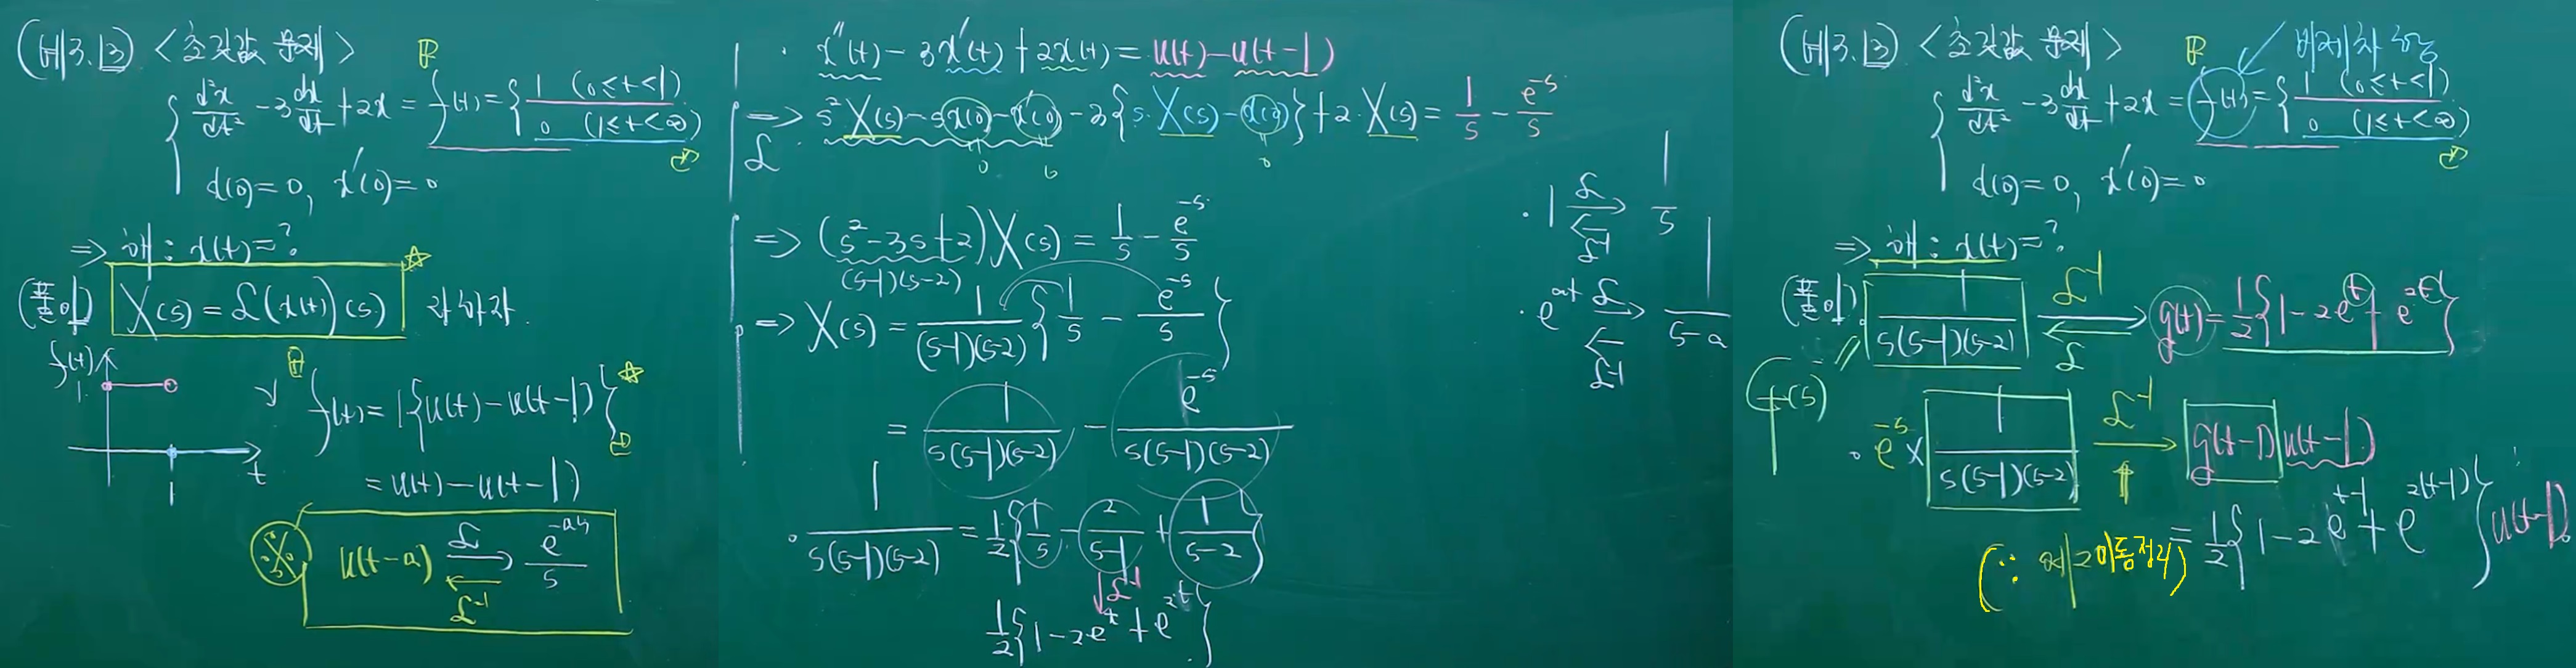 (예3.13) <초깃값 문제>
d²x/dt² - 3 dx/dt + 2x = f(t) = { 1 (0≤t<1)
0 (1≤t<∞)
x(0)=0, x'(0)=0
⇒ 해 : x(t)=?
(풀이) X(s) = ℒ(x(t))(s) 라 하자.
f(t)
1
t
1
f(t) = 1{u(t)-u(t-1)}
= u(t)-u(t-1)
u(t-a) ℒ ⇄ ℒ⁻¹ e^{-as}/s
· x''(t) - 3x'(t) + 2x(t) = u(t) - u(t-1)
⇒ ℒ s²X(s) - sx(0) - x'(0) - 3{s·X(s) - x(0)} + 2·X(s) = 1/s - e^{-s}/s
0 0 0
⇒ (s²-3s+2)X(s) = 1/s - e^{-s}/s
(s-1)(s-2)
⇒ X(s) = 1/((s-1)(s-2)) {1/s - e^{-s}/s}
= 1/(s(s-1)(s-2)) - e^{-s}/(s(s-1)(s-2))
· 1/(s(s-1)(s-2)) = 1/2 {1/s - 2/(s-1) + 1/(s-2)}
↓ ℒ⁻¹
1/2 {1-2e^t+e^{2t}}
· 1 ℒ ⇄ ℒ⁻¹ 1/s
· e^{at} ℒ ⇄ ℒ⁻¹ 1/(s-a)
(예3.13) <초깃값 문제>
비제차항
d²x/dt² - 3 dx/dt + 2x = f(t) = { 1 (0≤t<1)
0 (1≤t<∞)
x(0)=0, x'(0)=0
⇒ 해 : x(t)=?
(풀이) · 1/(s(s-1)(s-2)) ℒ⁻¹ ⇄ ℒ g(t) = 1/2 {1-2e^t+e^{2t}}
F(s)
· e^{-s} × 1/(s(s-1)(s-2)) ℒ⁻¹ → g(t-1)u(t-1)
= 1/2 {1-2e^{t-1}+e^{2(t-1)}}u(t-1).
(∵ 제2이동정리)